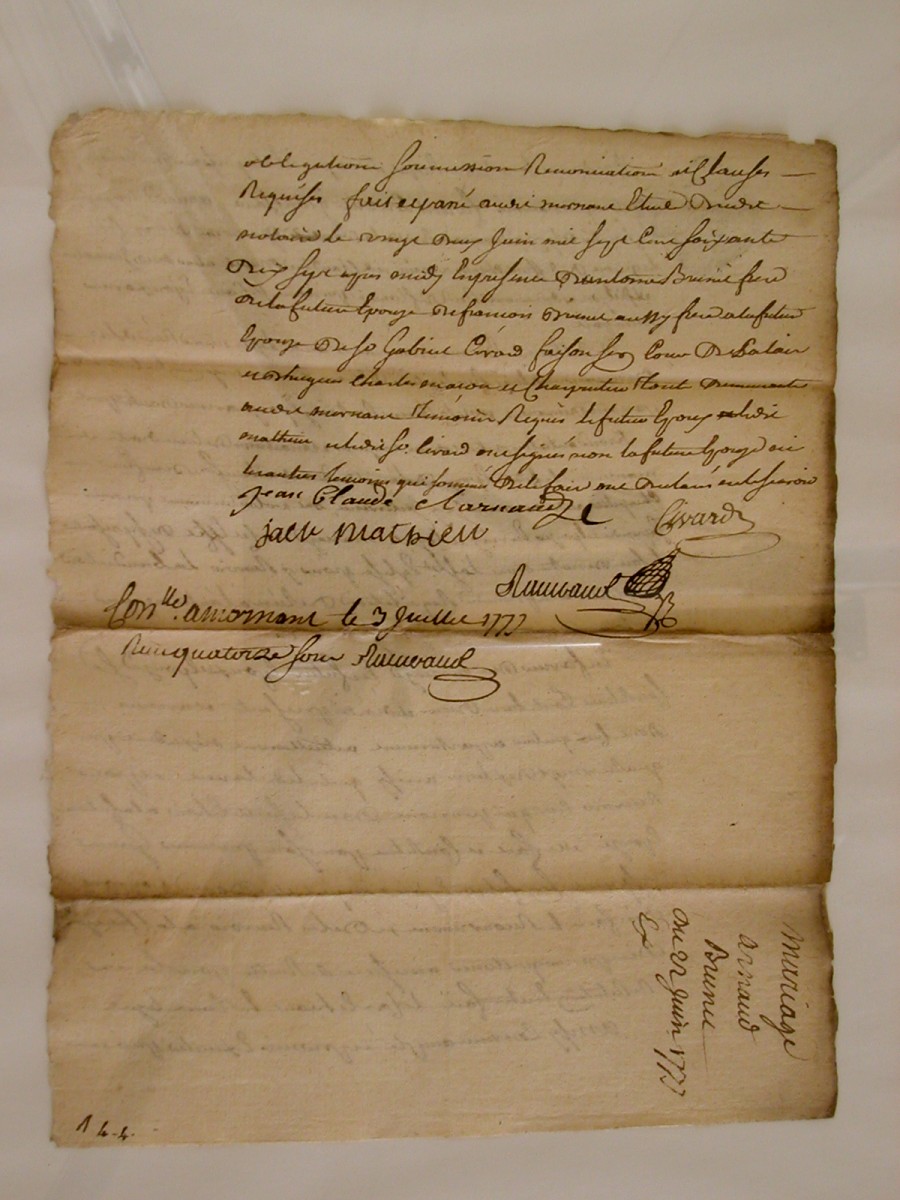 obligations soumission Renonciation et Clauses
Requises fait et passé audit mornant Etude dudit
notaire le vingt deux Juin mil sept Cent soixante
dix sept apres midy En presence d'antoine Brunet frere
de la future Epouse de francois Brunet aussy frere a la future
Epouse de Sr Gabriel Civard faison ses Cour de Palais
et d'hugues Charles macon et Charpentier tout demeurants
audit mornant temoins Requis le futur Epoux ledit
mathieu et ledit Sr. Civard ont signés non la future Epouse ni
les autres temoins qui sommés de le faire ont declaré ne le scavoir
Jean Claude Arnaud
Civard
jack Mathieu
Con.lle a mornant le 3 Juillet 1777
Reçu quatorze sous
mariage
arnaud
Brunet
du 22 Juin 1777
Ex
144.